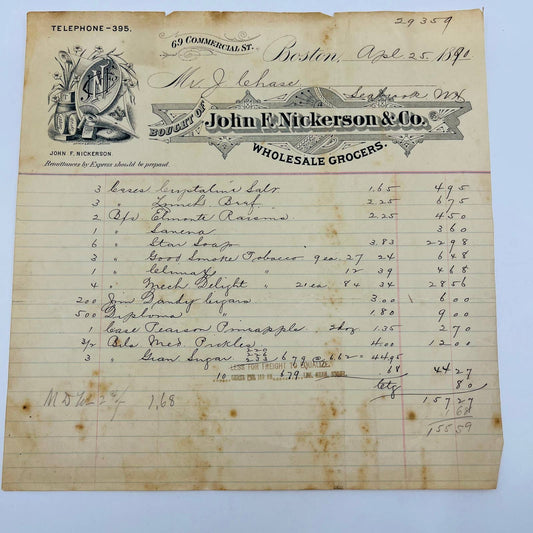 29359
TELEPHONE-395.
69 COMMERCIAL ST.
Boston, Apl 25. 1890
Mr J. Chase
Seabrook NH
BOUGHT OF John F. Nickerson & Co.
WHOLESALE GROCERS.
JOHN F. NICKERSON
Remittances by Express should be prepaid.
3 Cases Salt 1.65 4 95
3 " Lunch Beef 2.25 6 75
2 Bxs Elmonte Raisins 2.25 4 50
1 " 3 60
6 " Star Soap 3.83 22 98
3 " Good Smoke Tobacco 9 ea. 27 24 6 48
1 " Climax " 12 39 4 68
4 " Mech Delight " 21 ea. 84 34 28 56
200 Jim Dandy Cigars 3.00 6 00
500 Diploma " 1.80 9 00
1 Case Pearson Pineapple 2 doz 1.35 2 70
Bbls Med. Pickles 4.00 12 00
220
226
3 " Gran Sugar 233 679 @ 6.62 44.95
LESS FOR FREIGHT TO EQUALIZE
10 679 .68 44 27
Ctg 80
157 27
M D 1.68 1 68
155 59